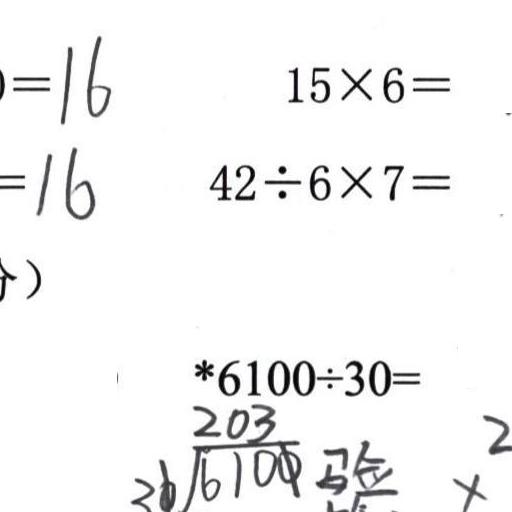 )=16 15×6=
=16 42÷6×7=
分)
*6100÷30=
203
30√6100 验 × 2